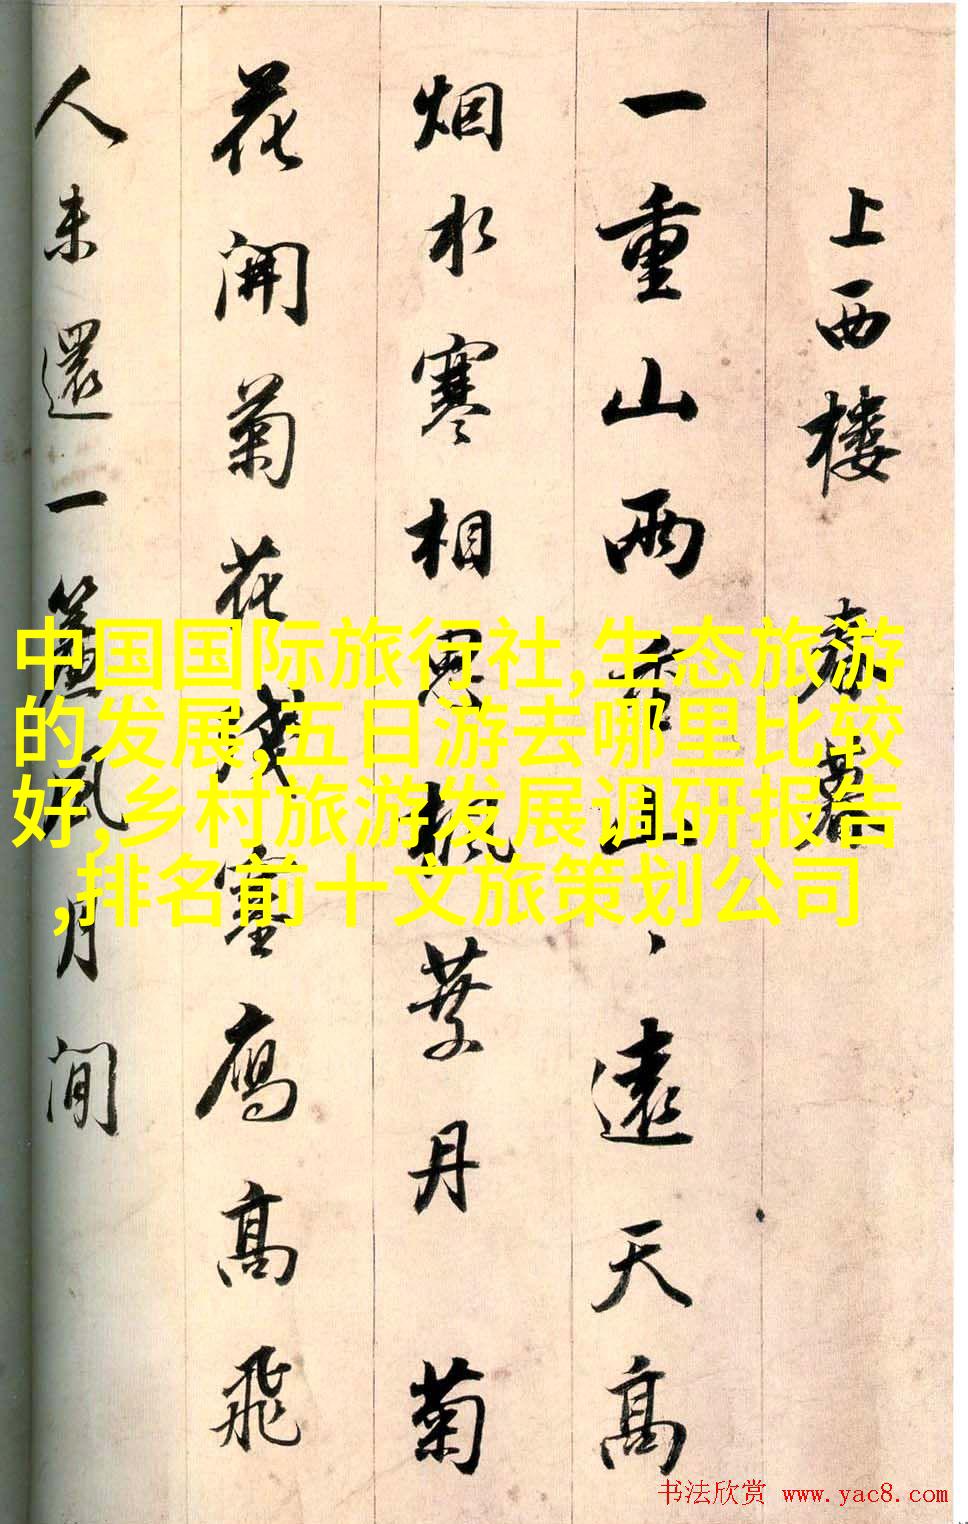 上西楼
一重山兩重山、遠天高
烟水寒相思枫葉丹 菊
花開菊花残塞鴈高飛
人未還一簾風月閒
中国国际旅行社,生态旅游
的发展,五日游去哪里比较
好,乡村旅游发展调研报告
,排名前十文旅策划公司
书法欣赏 www.yac8.com